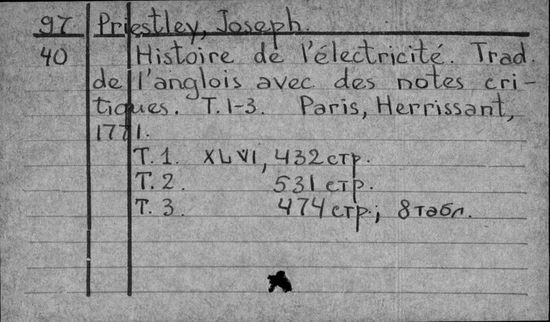 97 Priestley, Joseph.
40 Histoire de l'électricité. Trad.
de l'anglois avec des notes cri-
tiques. T. 1-3. Paris, Herrissant,
1771.
T. 1. XLVI, 432 стр.
T. 2. 531 стр.
T. 3. 474 стр.; 8 табл.